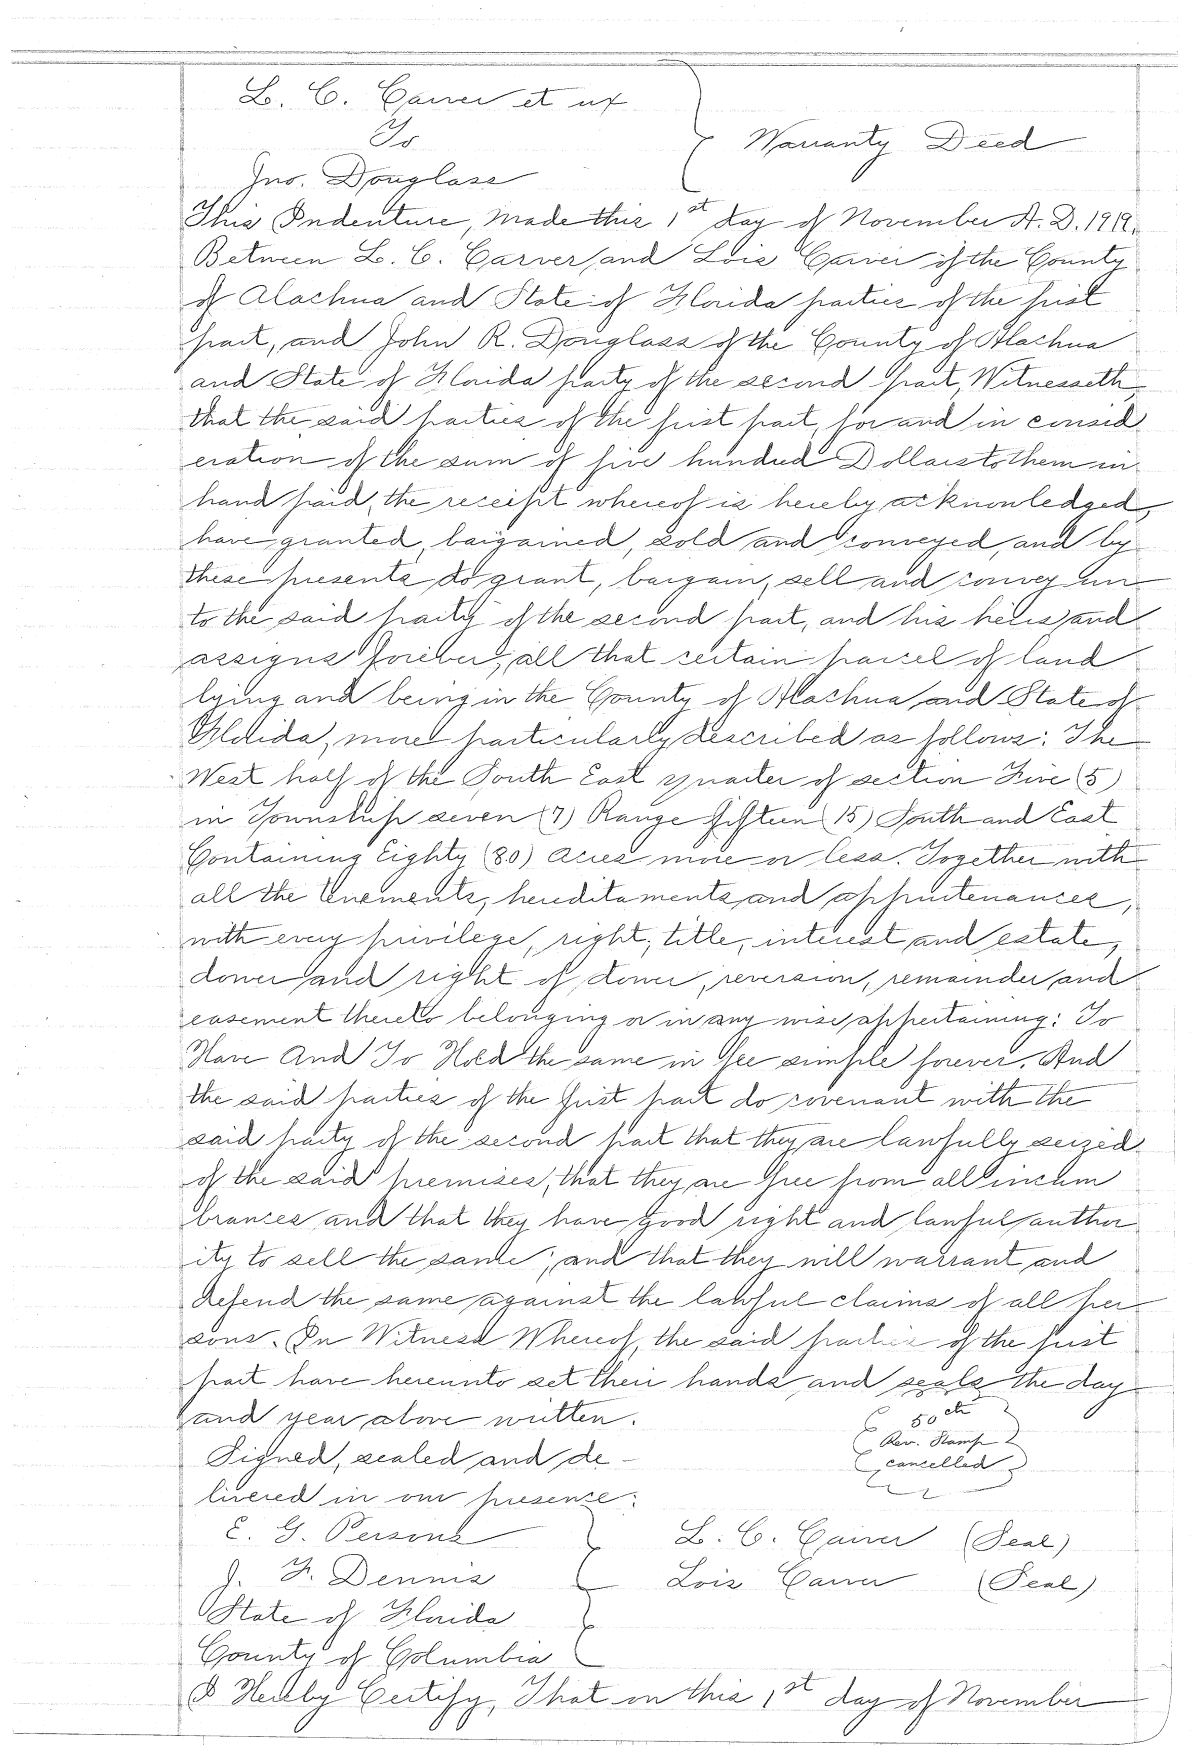 L. C. Carver et ux
To
Warranty Deed
Jno. Douglass
This Indenture, made this 1st day of November A. D. 1919.
Between L. C. Carver, and Lois Carver of the County
of Alachua and State of Florida parties of the first
part, and John R. Douglass of the County of Alachua
and State of Florida party of the second part, Witnesseth,
that the said parties of the first part, for and in consid
eration of the sum of five hundred Dollars to them in
hand paid, the receipt whereof is hereby acknowledged,
have granted, bargained, sold and conveyed, and by
these presents do grant, bargain, sell and convey un
to the said party of the second part, and his heirs and
assigns forever, all that certain parcel of land
lying and being in the County of Alachua and State of
Florida, more particularly described as follows: The
West half of the South East quarter of section Five (5)
in Township seven (7) Range fifteen (15) South and East
Containing Eighty (80) acres more or less. Together with
all the tenements, hereditaments and appurtenances,
with every privilege, right, title, interest and estate,
dower and right of dower, reversion, remainder and
easement thereto belonging or in any wise appertaining: To
Have And To Hold the same in fee simple forever. And
the said parties of the first part do covenant with the
said party of the second part that they are lawfully seized
of the said premises, that they are free from all incum
brances and that they have good right and lawful author
ity to sell the same; and that they will warrant and
defend the same against the lawful claims of all per
sons. In Witness Whereof, the said parties of the first
part have hereunto set their hands and seals the day
and year above written.
50 cts
Rev. Stamp
cancelled
Signed, sealed and de-
livered in our presence:
E. G. Persons
L. C. Carver (Seal)
J. F. Dennis
Lois Carver (Seal)
State of Florida
County of Columbia
I Hereby Certify, That on this 1st day of November